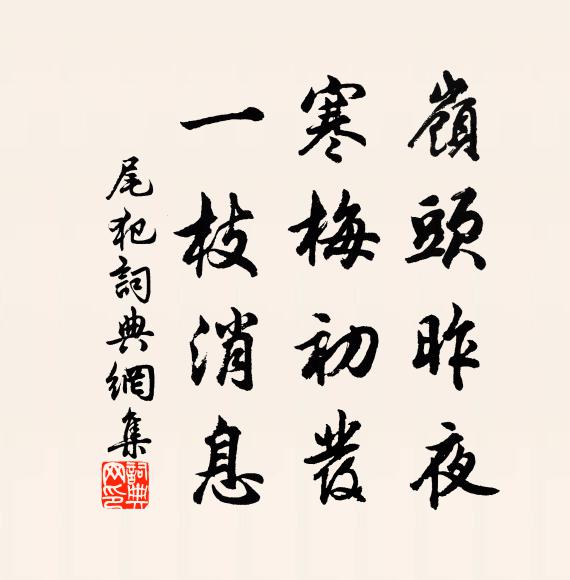 嶺頭昨夜
寒梅初發
一枝消息
尾犯詞典網集
詞典網印